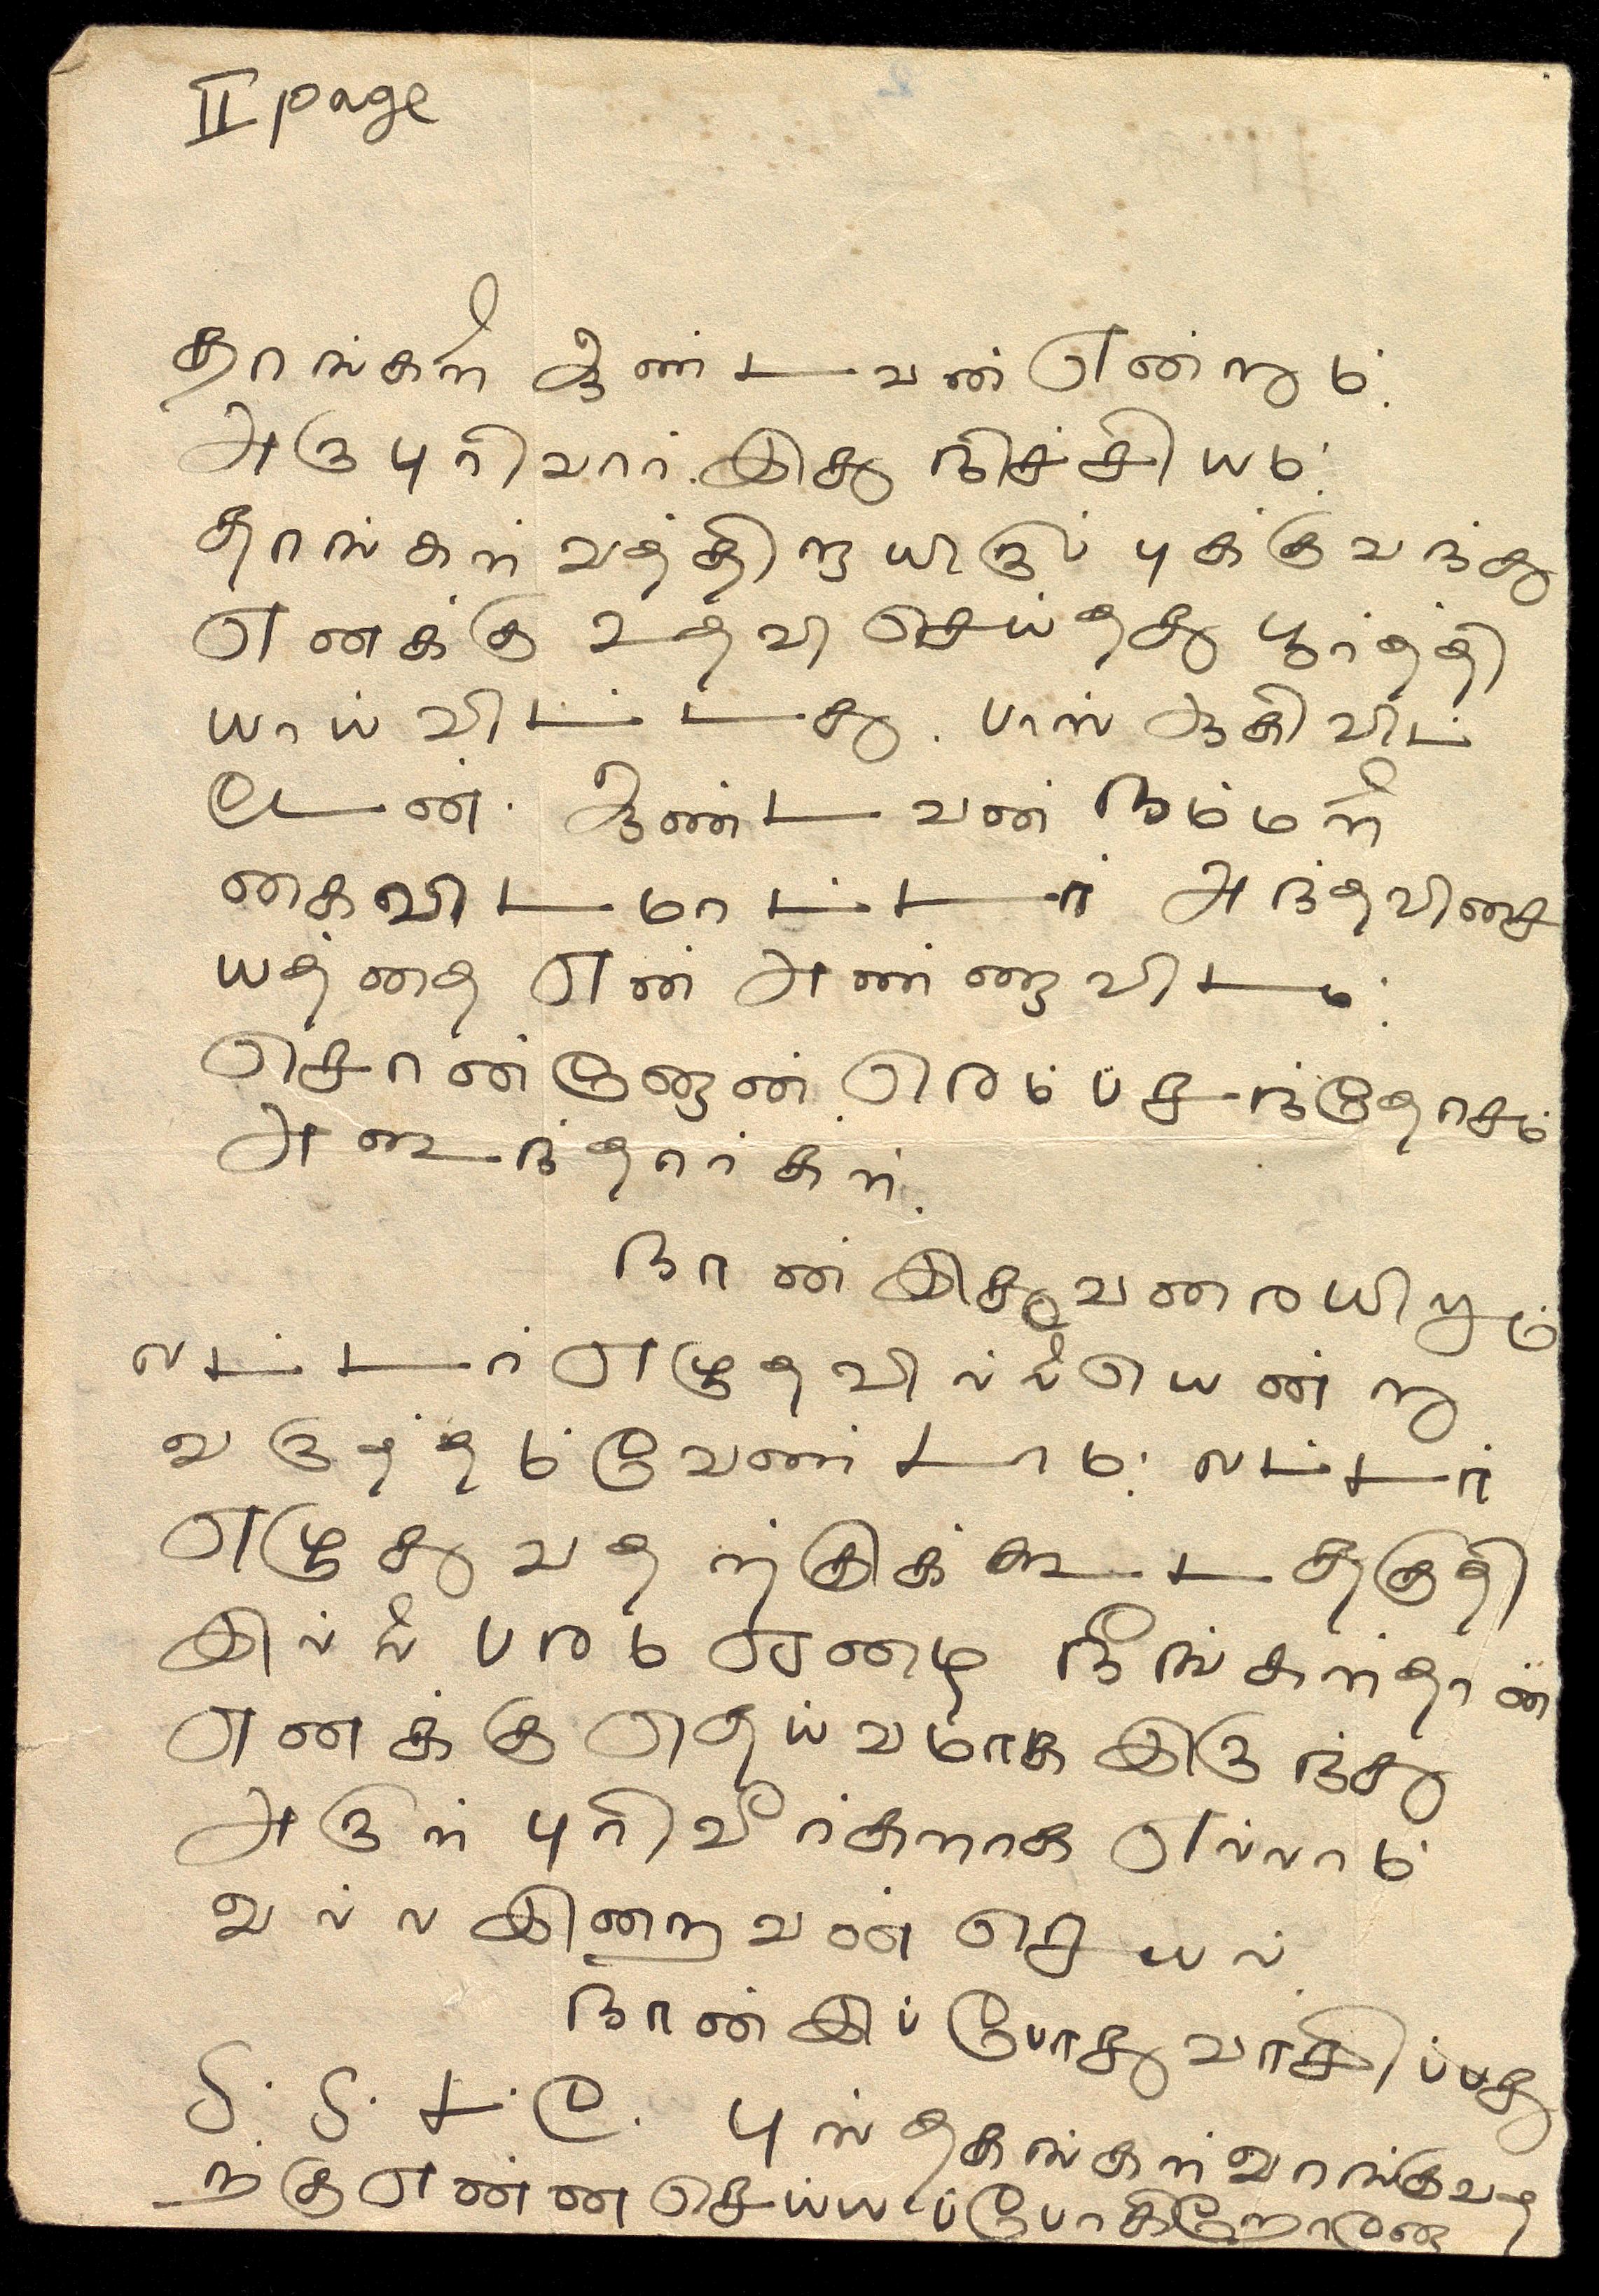 II page
தாங்களை ஆண்டவன் என்றும்.
அருபுரிவார். இது நிச்சியம்.
தாங்கள் வத்திறாயிருப்புக்கு வந்து
எனக்கு உதவி செய்தது பூர்த்தி
யாய் விட்டது. பாஸ் ஆகிவிட்
டேன். ஆண்டவன் நம்மளை
கைவிடமாட்டார் அந்தவிசை
யத்தை என் அண்ணாவிடம்.
சொன்னேன். ரெம்ப சந்தோசம்
அடைந்தார்கள்.
நான் இதுவரையிலும்
லட்டர் எழுதவில்லையென்று
வருத்தம் வேண்டாம். லட்டர்
எழுதுவதற்கிக்கூட தகுதி
இல்லை பரம ஏழை நீங்கள்தான்
எனக்கு தெய்வமாக இருந்து
அருள் புரிவீர்களாக எல்லாம்
வல்ல இறைவன் செயல்.
நான் இப்போது வாசிப்பது
S. S. L. C. புஸ்தகங்கள் வாங்குவத
ற்கு என்ன செய்யப்போகிறோ